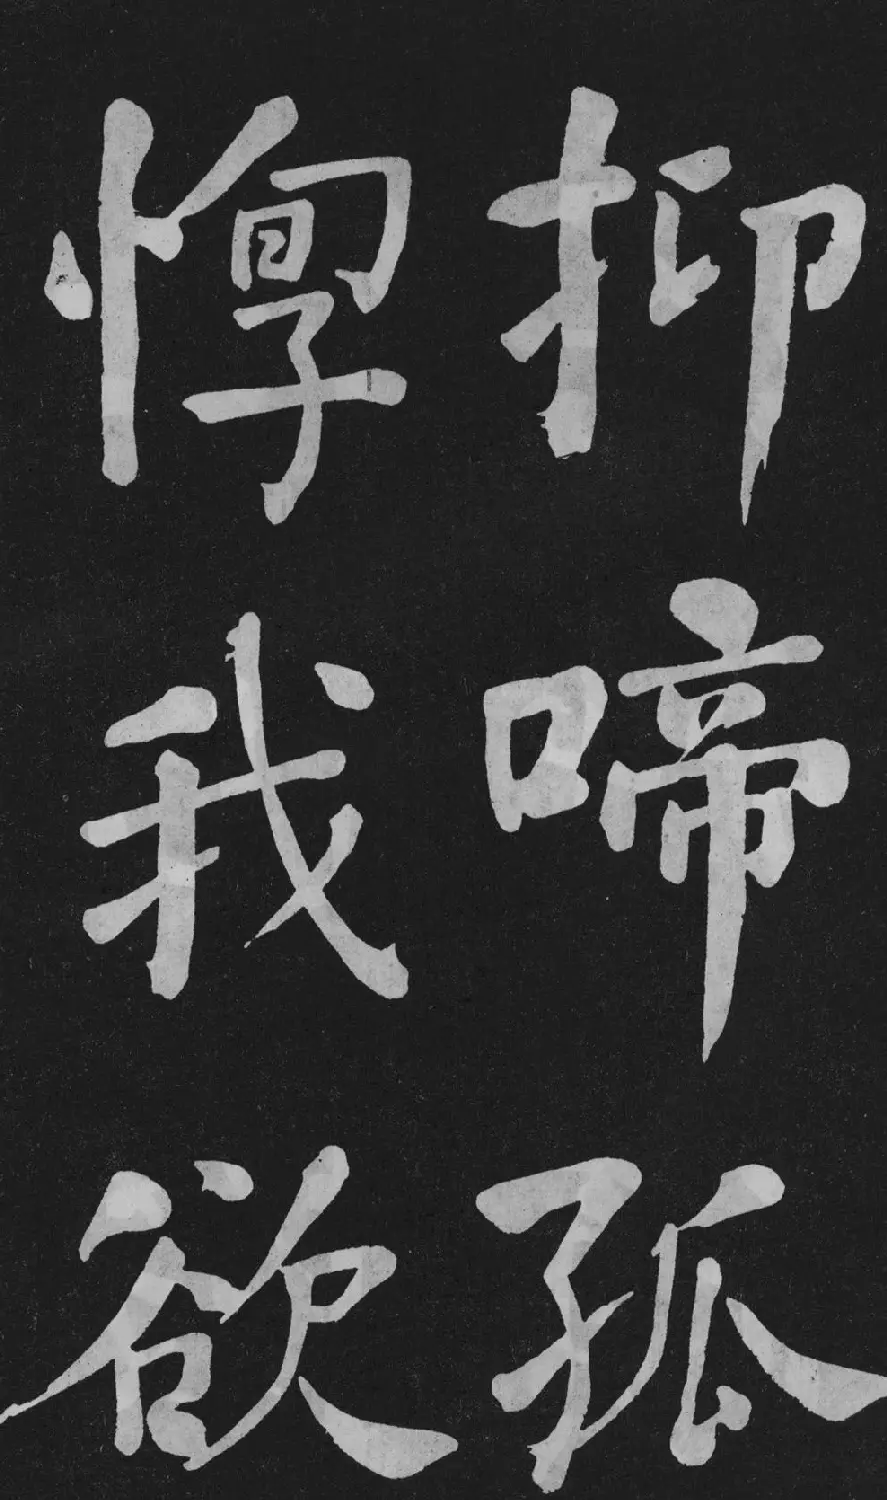 抑啼孤
惸我欲